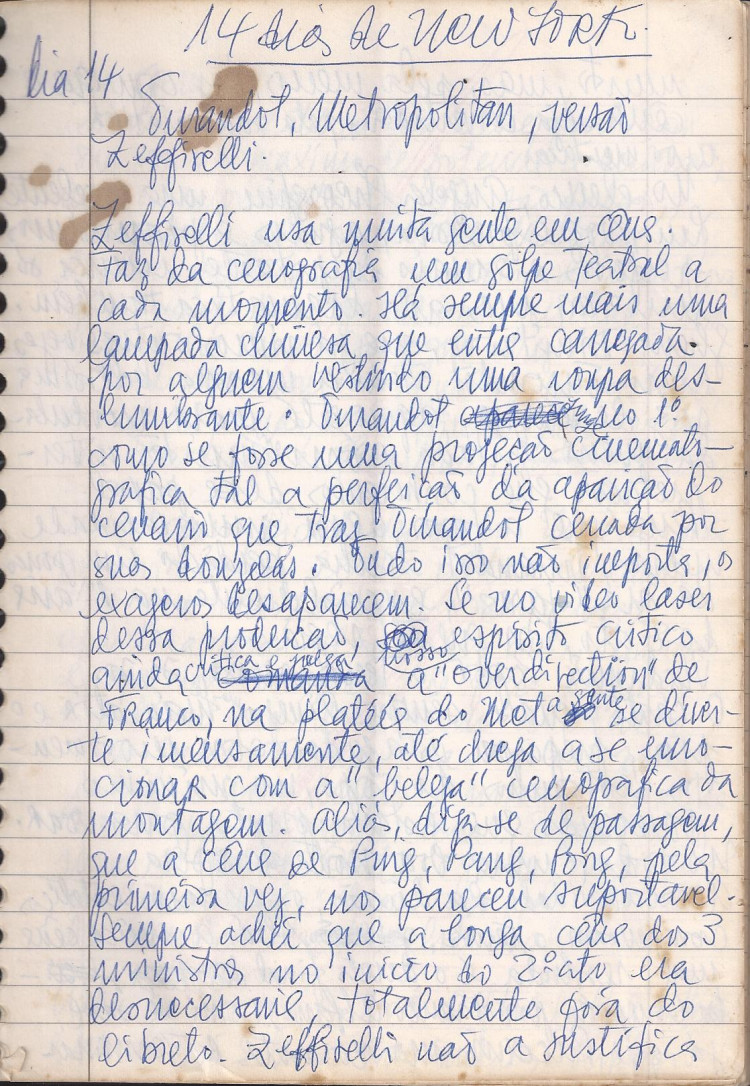 14 dias de New York.
Dia 14
Turandot, Metropolitan, versão
Zeffirelli.
Zeffirelli usa muita gente em cena.
Faz da cenografia um golpe teatral a
cada momento. Há sempre mais uma
lampada chinesa que entra carregada
por alguem vestindo uma roupa des-
lumbrante. Turandot surge no 1º
como se fosse uma projeção cinemato-
grafica tal a perfeição da aparição do
cenario que traz Turandot cercada por
suas donzelas. Tudo isso não importa, os
exageros desaparecem. Se no video laser
dessa produção, nosso espirito critico
ainda critica e julga a "overdirection" de
Franco, na plateia do Met a gente se diver-
te imensamente, até chega a se emo-
cionar com a "beleza" cenografica da
montagem. Aliás, diga-se de passagem,
que a cena de Ping, Pang, Pong, pela
primeira vez, nos pareceu suportavel.
Sempre achei que a longa cena dos 3
ministros no inicio do 2º ato era
desnecessaria, totalmente fora do
libreto. Zeffirelli não a justifica